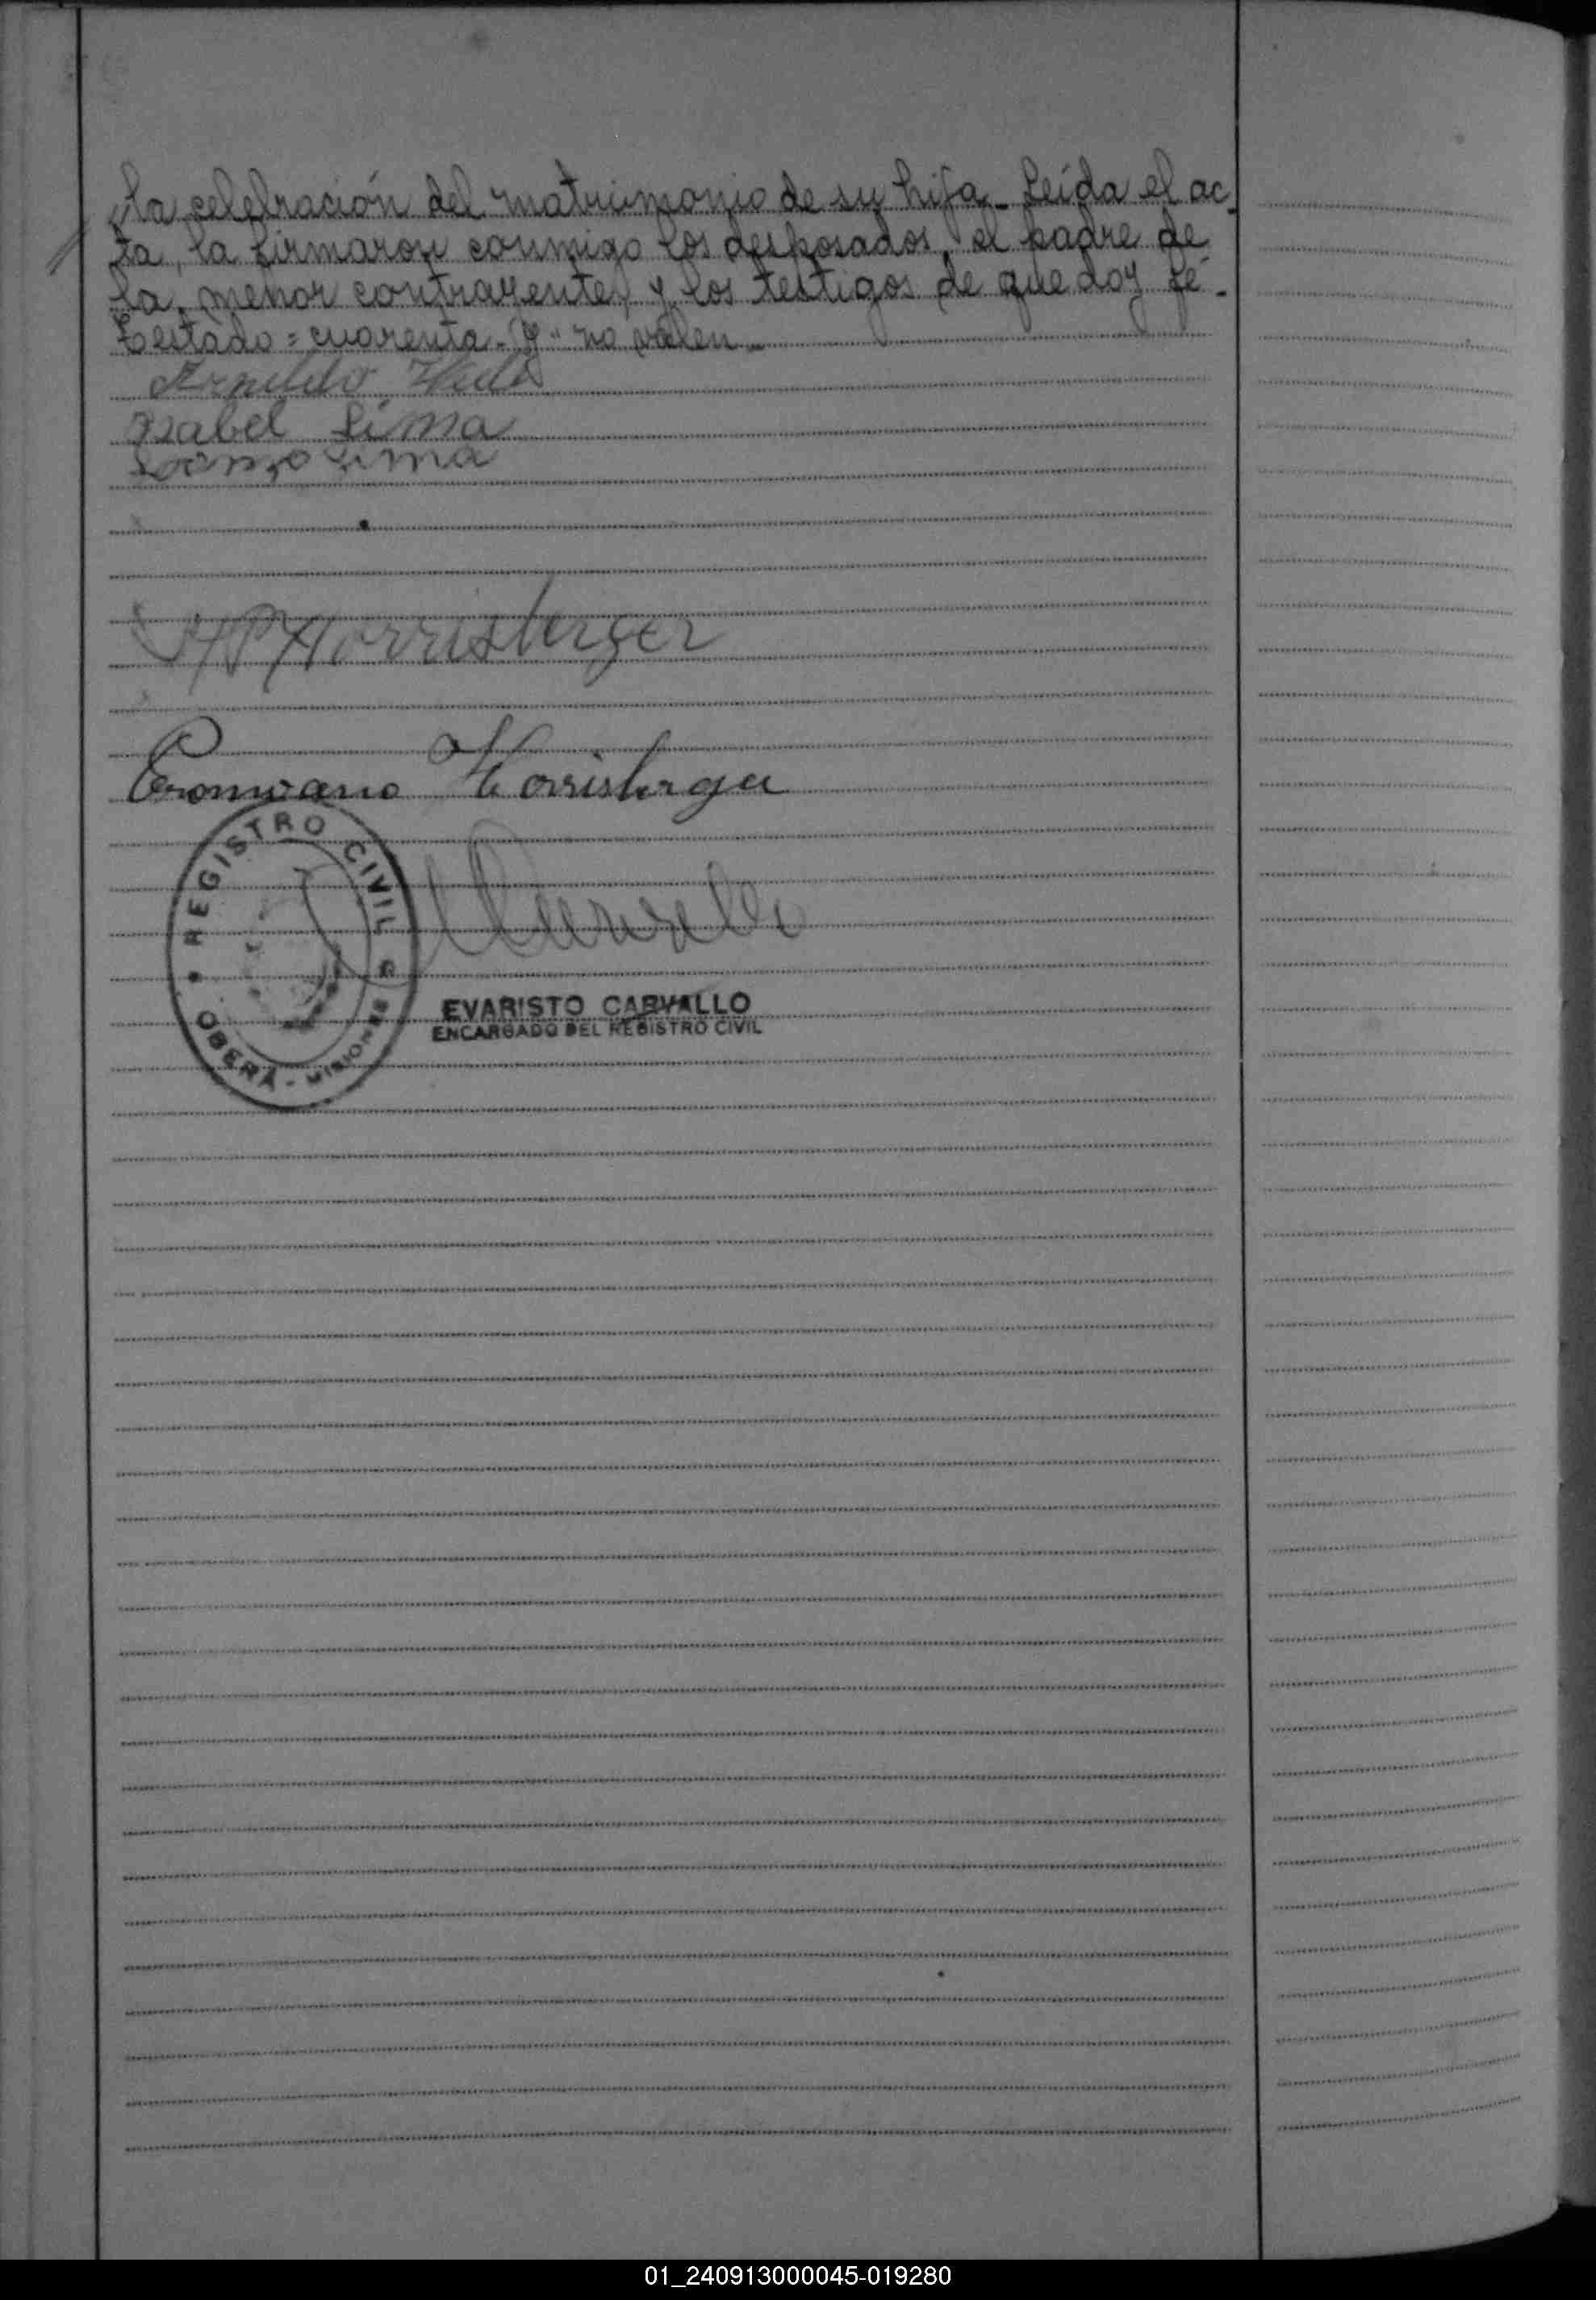 la celebración del matrimonio de su hija_ Leída el ac_
ta, la firmaron conmigo los desposados, el padre de
la menor contrayente, y los testigos de que doy fé_
Testado = cuarenta - y " no valen_
Arnildo
Isabel Lima
Lima
Horrisberger
Horrisberger
REGISTRO CIVIL
OBERÁ - MISIONES
Carvallo
EVARISTO CARVALLO
ENCARGADO DEL REGISTRO CIVIL
01_240913000045-019280